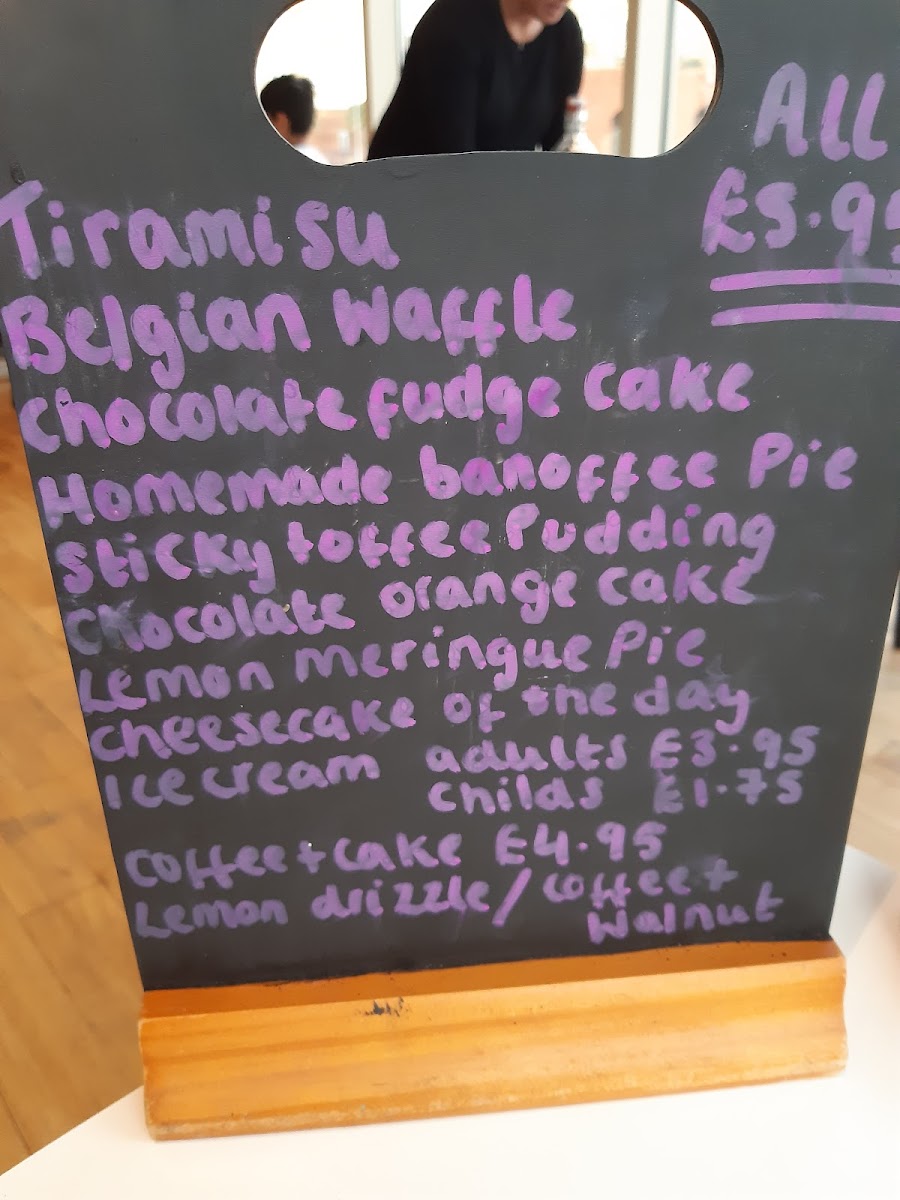 All
£5.95
Tiramisu
Belgian Waffle
Chocolate fudge cake
Homemade banoffee Pie
Sticky toffee Pudding
Chocolate orange cake
Lemon meringue Pie
Cheesecake of the day
Ice cream adults £3.95
Childs £1.75
Coffee + Cake £4.95
Lemon drizzle / Coffee +
Walnut